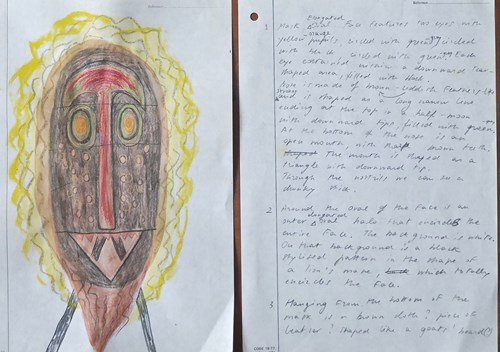 elongated
1 Mask Oval Face features two eyes with
orange
yellow pupils, circled with green, circled
with black circled with green, Each
eye contained within a downwards tear-
shaped area, filled with black.
Nose is made of brown-reddish
and is shaped as a long narrow line
ending at the top in a half-moon
with downward tips, filled with green.
At the bottom of the nose is an
open mouth, with teeth.
The mouth is shaped as a
triangle with downward tip.
Through the nostrils we can see a
stick.
2 Around the oval of the face is an
elongated
outer oval halo that encircles the
entire face. The background is white
On that background is a black
stylised pattern in the shape of
a lion's mane which totally
encircles the face.
3 Hanging from the bottom of the
mask is a brown cloth? piece of
leather? shaped like a goat's beard(?)